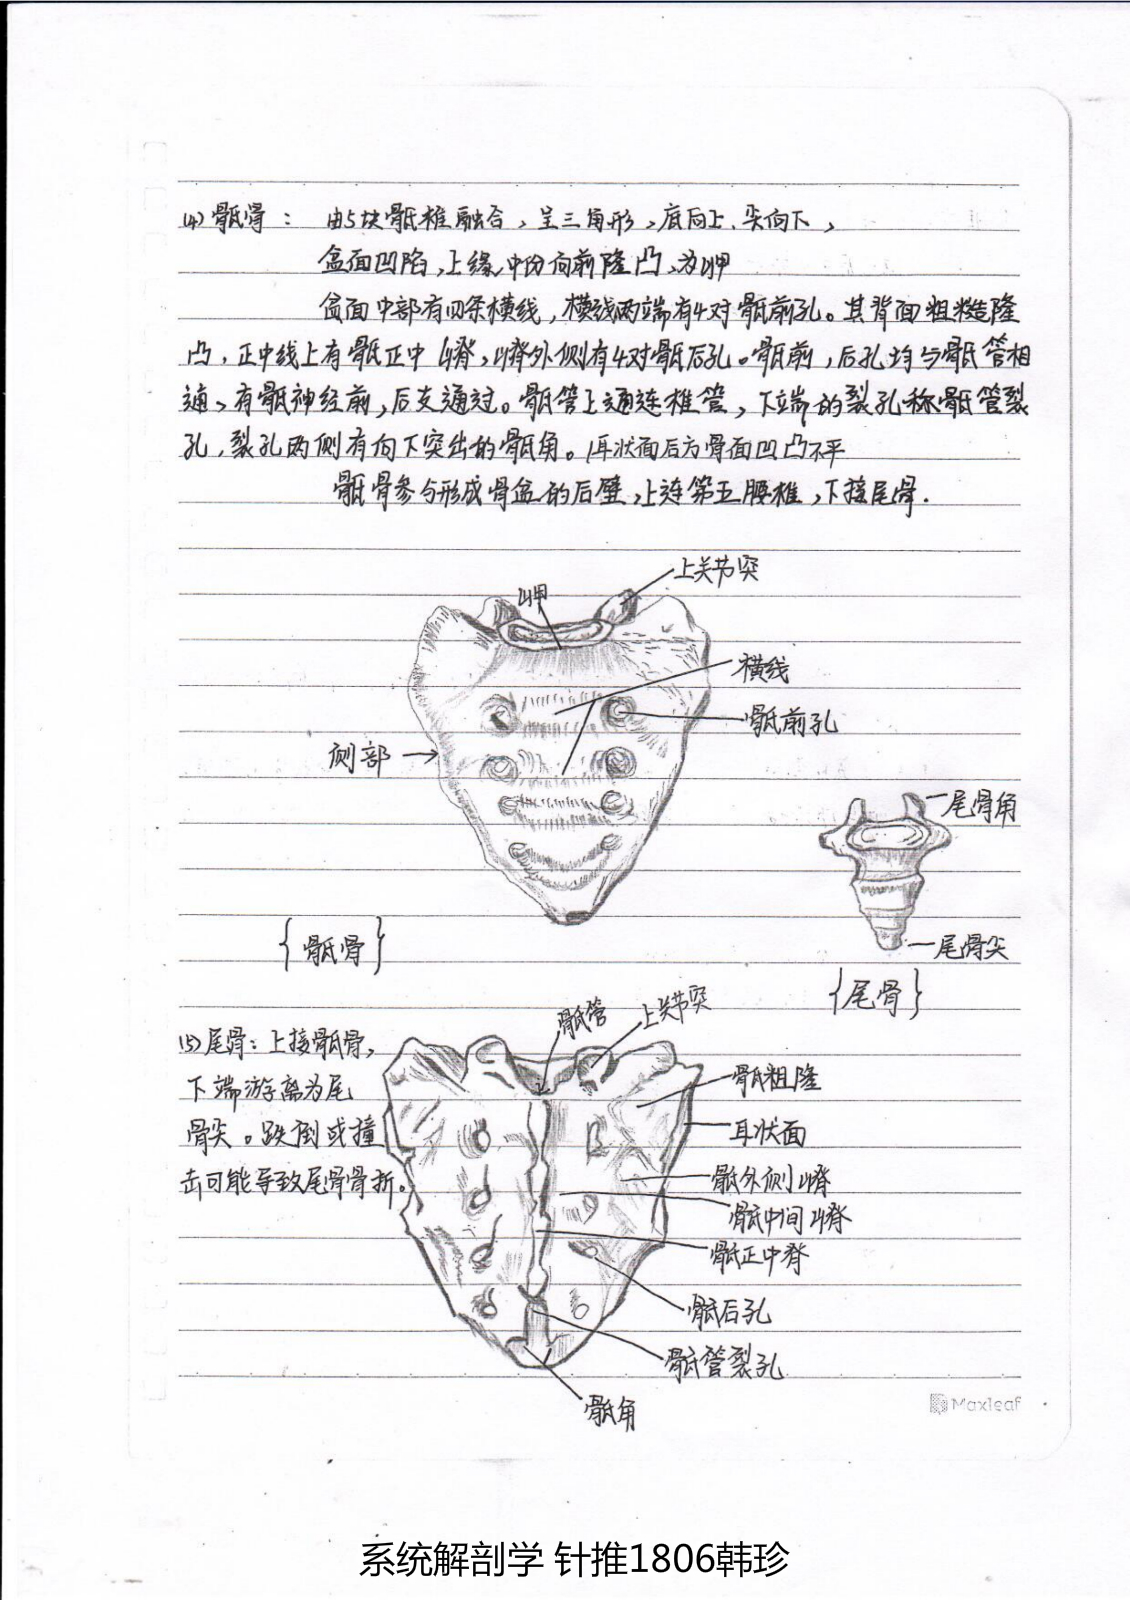 (4) 骶骨： 由5块骶椎融合，呈三角形，底向上、尖向下，
盆面凹陷，上缘中份向前隆凸，为岬
盆面中部有四条横线，横线两端有4对骶前孔。其背面粗糙隆
凸，正中线上有骶正中嵴，嵴外侧有4对骶后孔。骶前，后孔均与骶管相
通、有骶神经前，后支通过。骶管上通连椎管，下端的裂孔称骶管裂
孔，裂孔两侧有向下突出的骶角。耳状面后方骨面凹凸不平
骶骨参与形成骨盆的后壁，上连第五腰椎，下接尾骨.
上关节突
岬
横线
骶前孔
侧部
尾骨角
尾骨尖
{骶骨}
{尾骨}
骶管
上关节突
(5) 尾骨：上接骶骨，
下端游离为尾
骨尖。跌倒或撞
击可能导致尾骨骨折。
骶粗隆
耳状面
骶外侧嵴
骶中间嵴
骶正中脊
骶后孔
骶管裂孔
骶角
Maxleaf
系统解剖学 针推1806韩珍